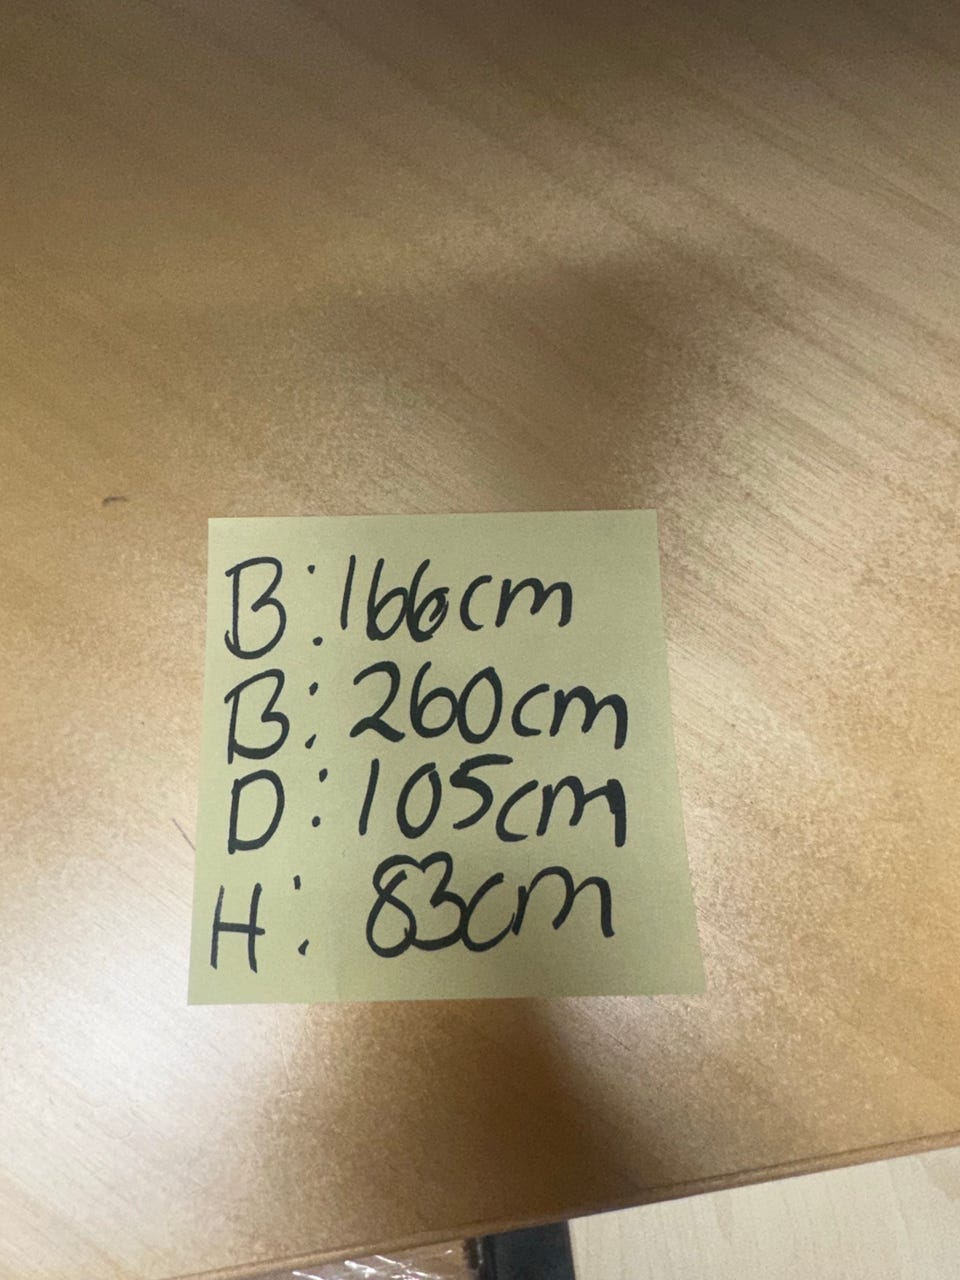 B: 166cm
B: 260cm
D: 105cm
H: 83cm